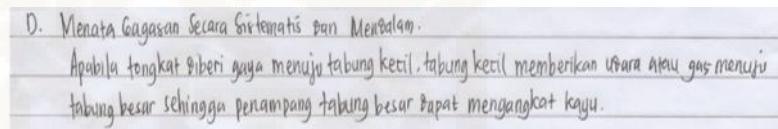 D. Menata Gagasan Secara Sistematis Dan Mendalam.
Apabila tongkat diberi gaya menuju tabung kecil, tabung kecil memberikan udara atau gas menuju
tabung besar sehingga penampang tabung besar dapat mengangkat kayu.